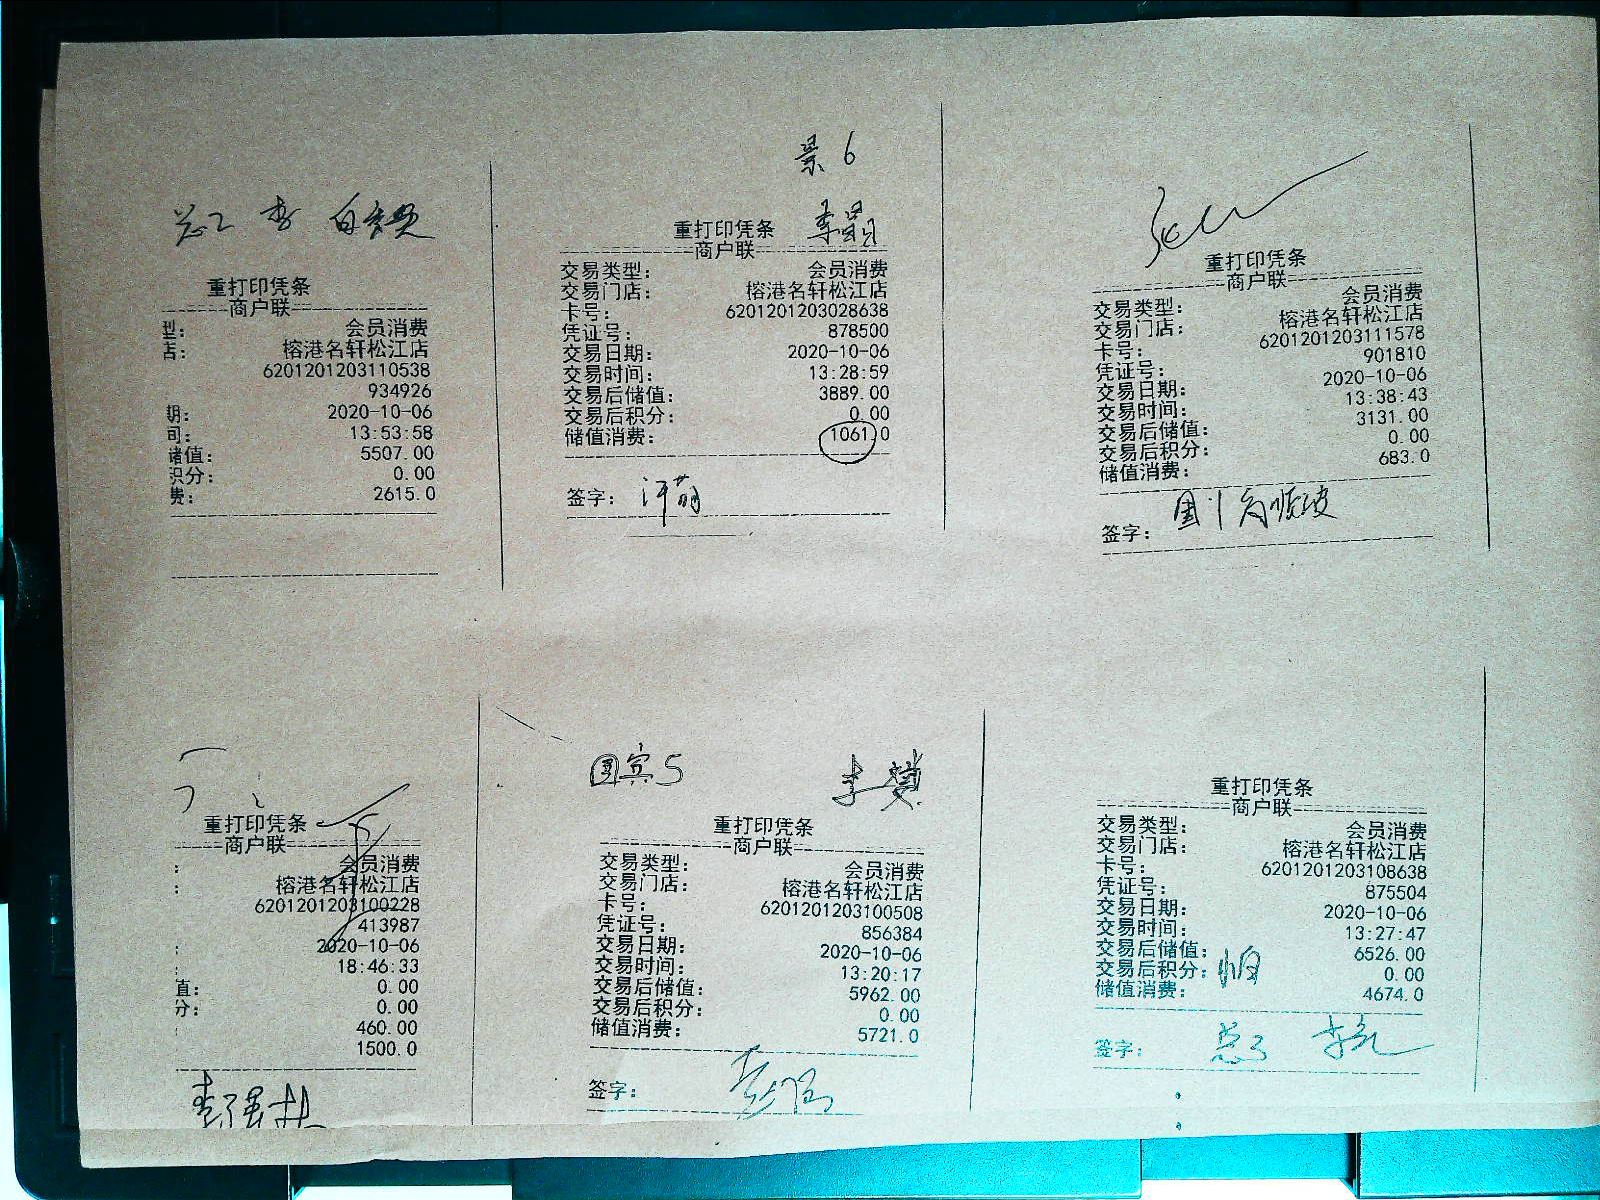 重打印凭条
商户联
型： 会员消费
店： 榕港名轩松江店
6201201203110538
934926
期： 2020-10-06
间： 13:53:58
储值： 5507.00
积分： 0.00
费： 2615.0
景6
重打印凭条
商户联
交易类型： 会员消费
交易门店： 榕港名轩松江店
卡号： 6201201203028638
凭证号： 878500
交易日期： 2020-10-06
交易时间： 13:28:59
交易后储值： 3889.00
交易后积分： 0.00
储值消费： 1061.0
签字：
重打印凭条
商户联
交易类型： 会员消费
交易门店： 榕港名轩松江店
卡号： 6201201203111578
凭证号： 901810
交易日期： 2020-10-06
交易时间： 13:38:43
交易后储值： 3131.00
交易后积分： 0.00
储值消费： 683.0
签字：
重打印凭条
商户联
： 会员消费
： 榕港名轩松江店
6201201203100228
413987
： 2020-10-06
： 18:46:33
值： 0.00
分： 0.00
： 460.00
1500.0
国宾5
重打印凭条
商户联
交易类型： 会员消费
交易门店： 榕港名轩松江店
卡号： 6201201203100508
凭证号： 856384
交易日期： 2020-10-06
交易时间： 13:20:17
交易后储值： 5962.00
交易后积分： 0.00
储值消费： 5721.0
签字：
重打印凭条
商户联
交易类型： 会员消费
交易门店： 榕港名轩松江店
卡号： 6201201203108638
凭证号： 875504
交易日期： 2020-10-06
交易时间： 13:27:47
交易后储值： 6526.00
交易后积分： 0.00
储值消费： 4674.0
签字：